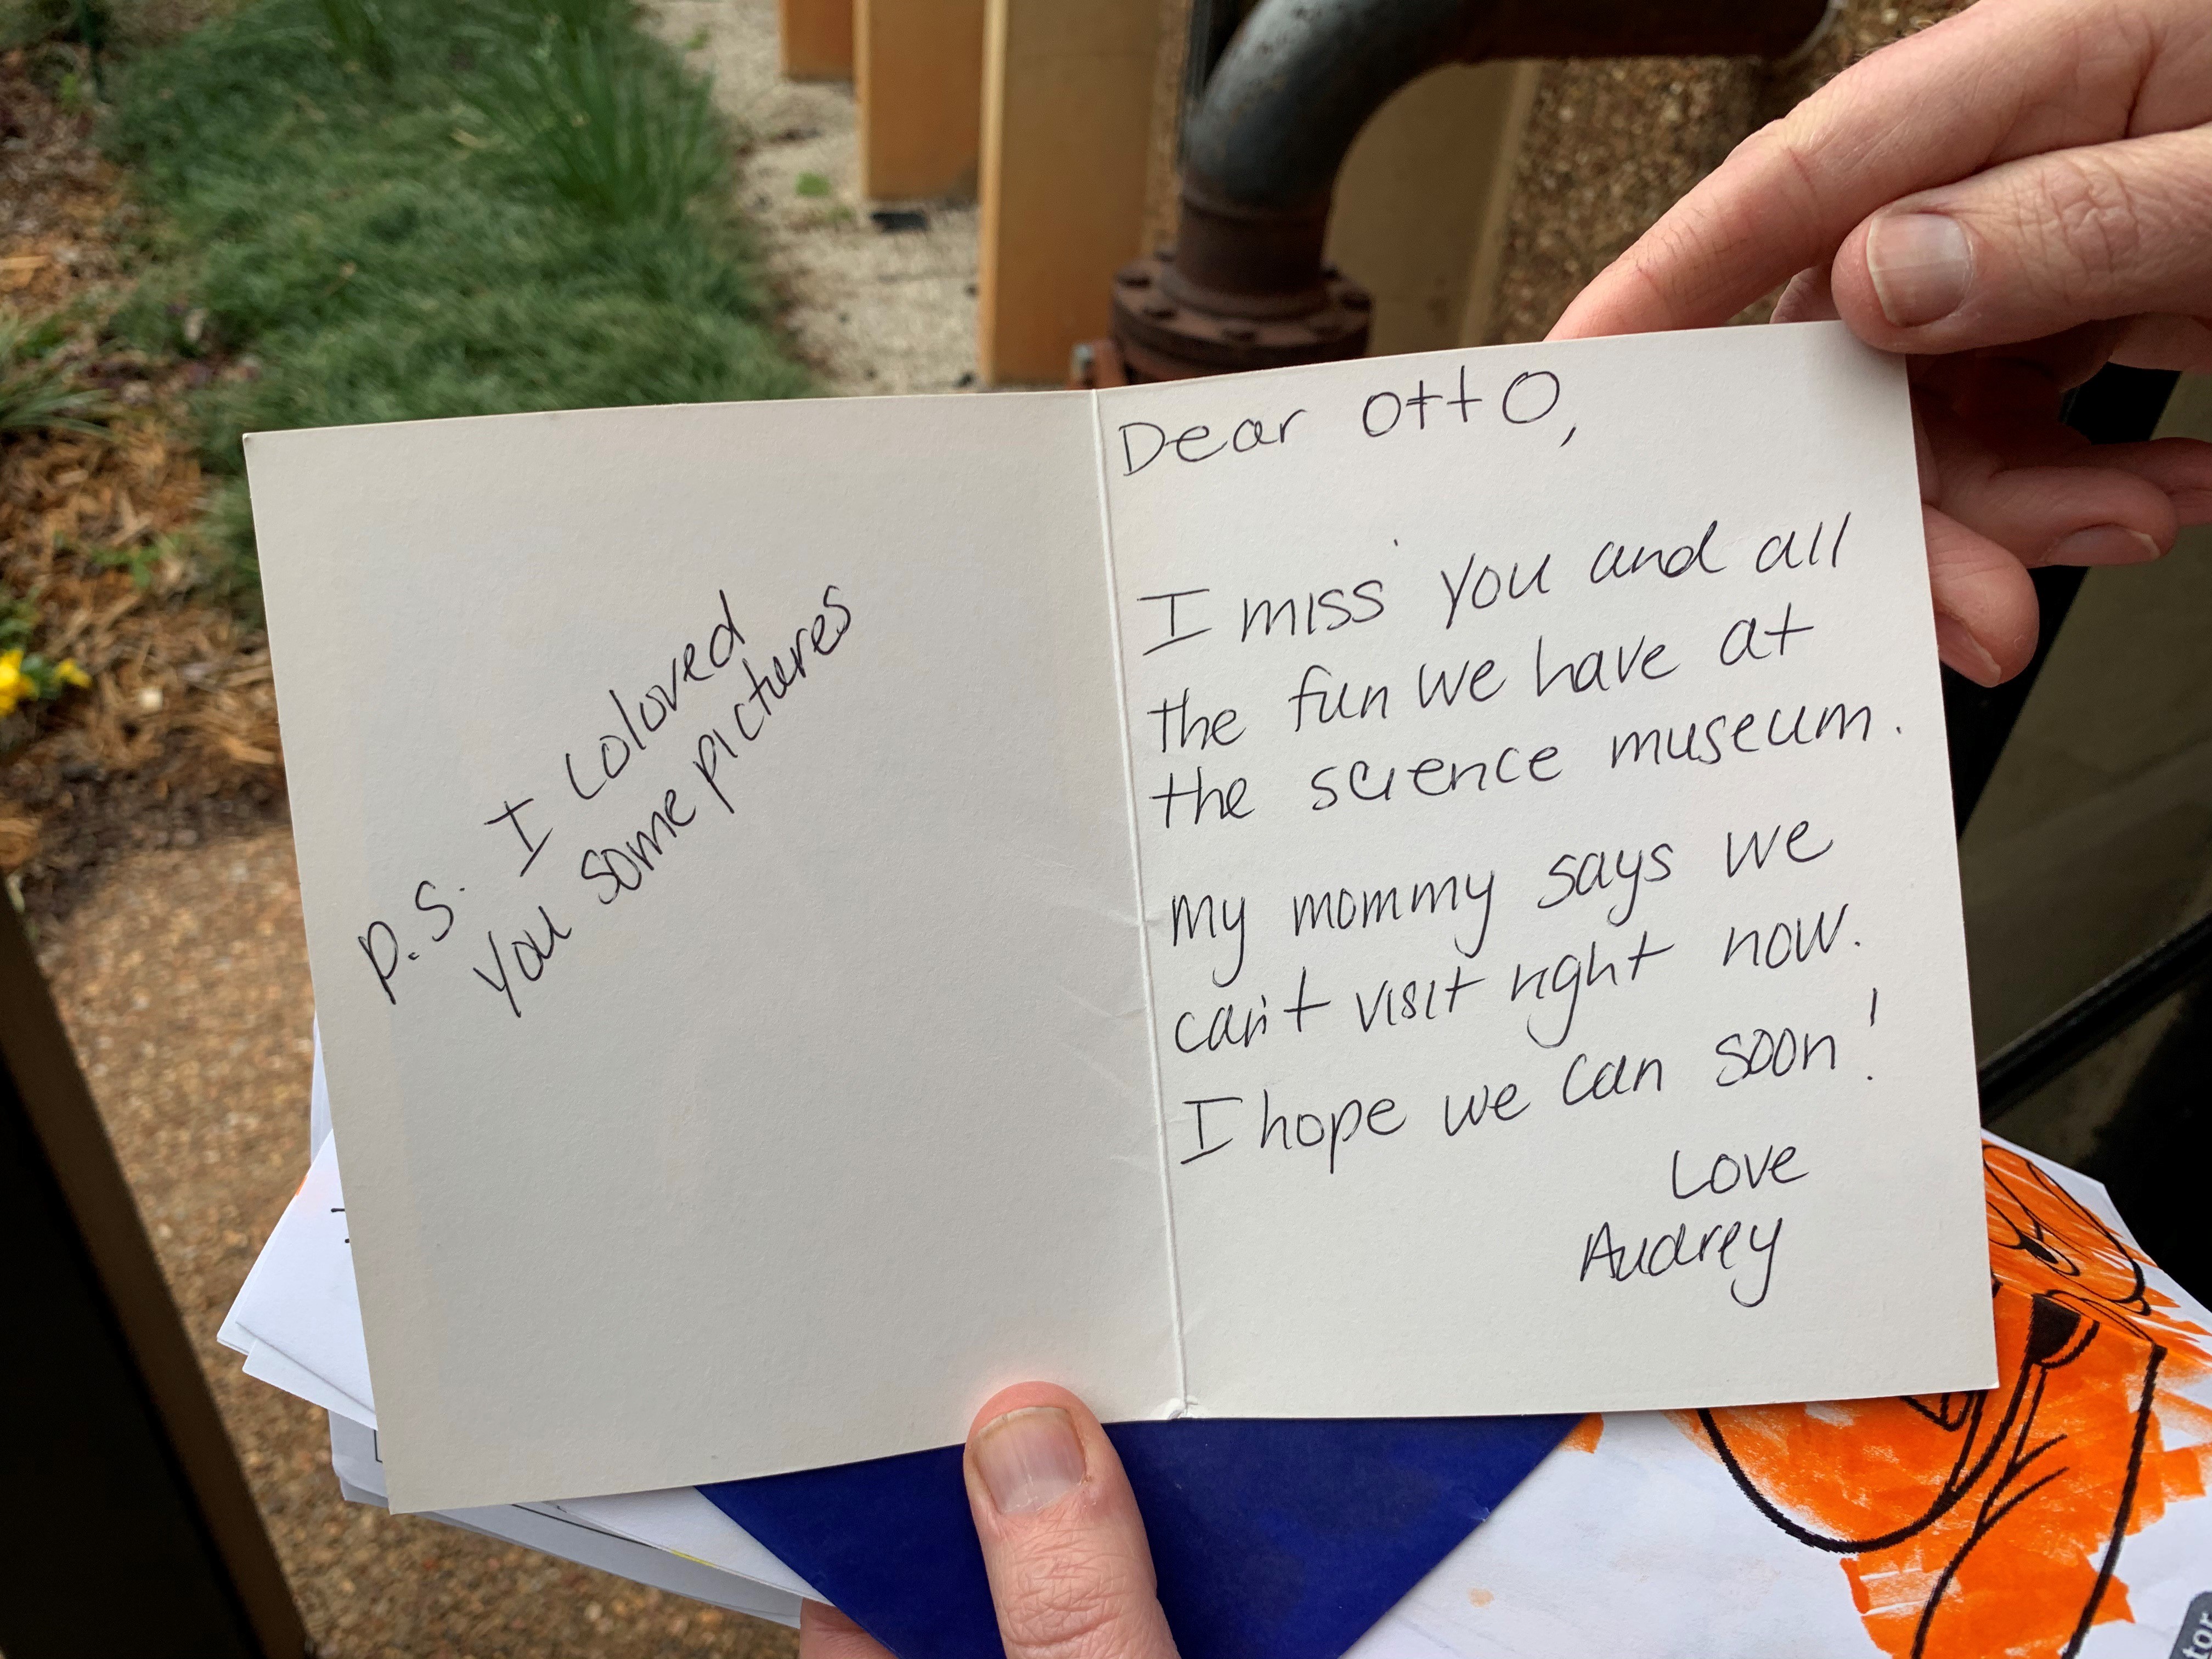 P.S. I colored
you some pictures
Dear Otto,
I miss you and all
the fun we have at
the science museum.
My mommy says we
can't visit right now.
I hope we can soon!
Love
Audrey